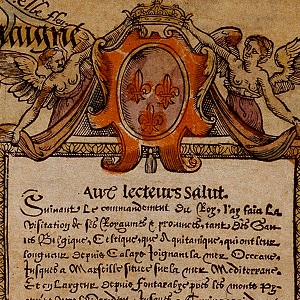 elle fleur
Avx lecteurs Salut.
Suiuant Le commandement du Roy, J'ay faict La
Visitation de ses Royaume & prouinces, tant des Gau-
les Belgique, Celtique, que Aquitanique, qui ont leur
longueur depuis Calays joignant la mer Occeane,
Jusques a Marseille située sur la mer Mediterrane,
Et en Largeur depuis fontarabye pres les monts Py-